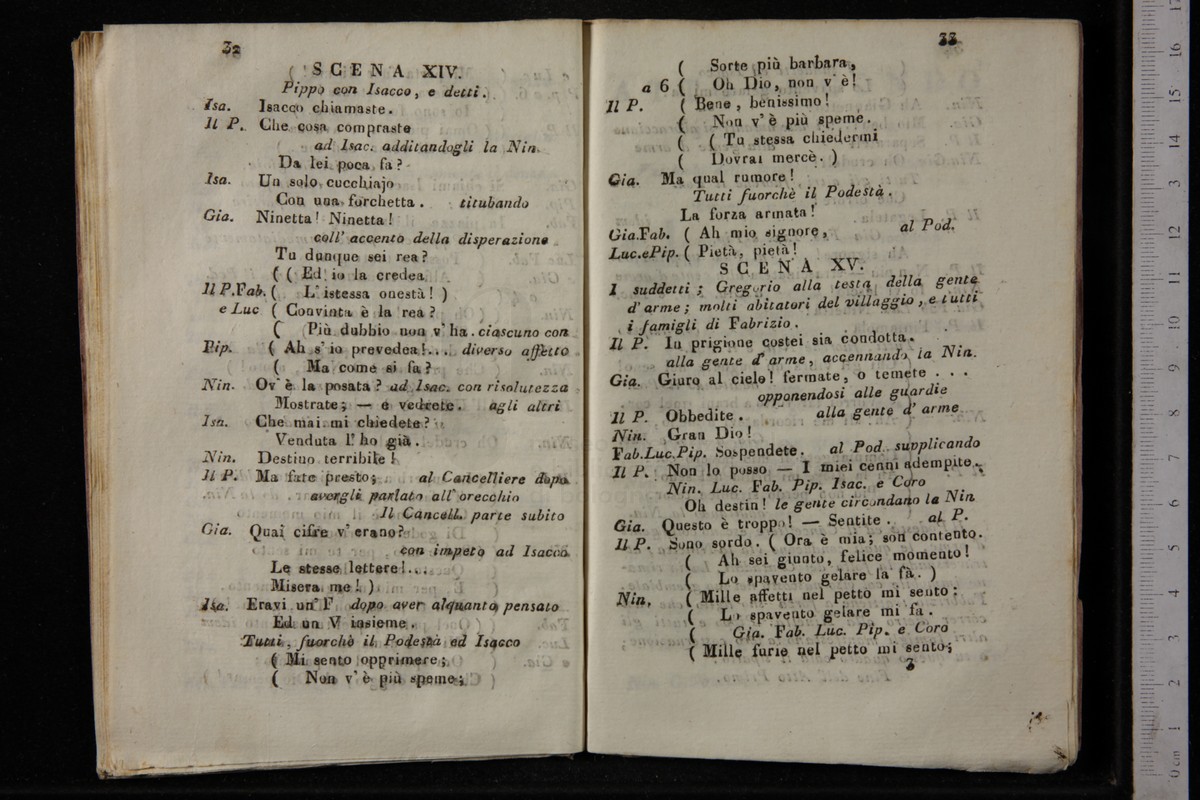 32
SCENA XIV.
Pippo con Isacco, e detti.
Isa. Isacco chiamaste.
Il P. Che cosa compraste
ad Isac. additandogli la Nin.
Da lei poca fa?
Isa. Un solo cucchiajo
Con una forchetta. titubando
Gia. Ninetta! Ninetta!
coll' accento della disperazione
Tu dunque sei rea?
( ( Ed io la credea
Il P.Fab. ( L' istessa onestà! )
e Luc ( Convinta è la rea?
( Più dubbio non v' ha. ciascuno con
Pip. ( Ah s' io prevedea!.... diverso affetto
( Ma come si fa?
Nin. Ov' è la posata? ad Isac. con risolutezza
Mostrate; — e vedrete. agli altri
Isa. Che mai mi chiedete?
Venduta l' ho già.
Nin. Destino terribile!
Il P. Ma fate presto; al Cancelliere dopo
avergli parlato all' orecchio
Il Cancell. parte subito
Gia. Quai cifre v' erano?
con impeto ad Isacco
Le stesse lettere!...
Misera me! )
Isa. Eravi un' F dopo aver alquanto pensato
Ed un V insieme.
Tutti, fuorchè il Podestà ed Isacco
( Mi sento opprimere;
( Non v' è più speme;
33
( Sorte più barbara,
a 6 ( Oh Dio, non v' è!
Il P. ( Bene, benissimo!
( Non v' è più speme.
( ( Tu stessa chiedermi
( Dovrai mercè. )
Gia. Ma qual rumore!
Tutti fuorchè il Podestà.
La forza armata!
Gia.Fab. ( Ah mio signore, al Pod.
Luc.ePip. ( Pietà, pietà!
SCENA XV.
I suddetti; Gregorio alla testa della gente
d' arme; molti abitatori del villaggio, e tutti
i famigli di Fabrizio.
Il P. In prigione costei sia condotta.
alla gente d' arme, accennando la Nin.
Gia. Giuro al cielo! fermate, o temete . . .
opponendosi alle guardie
Il P. Obbedite. alla gente d' arme
Nin. Gran Dio!
Fab.Luc.Pip. Sospendete. al Pod. supplicando
Il P. Non lo posso — I miei cenni adempite.
Nin. Luc. Fab. Pip. Isac. e Coro
Oh destin! le gente circondano la Nin
Gia. Questo è troppo! — Sentite. al P.
Il P. Sono sordo. ( Ora è mia; son contento.
( Ah sei giunto, felice momento!
( Lo spavento gelare la fa. )
Nin, ( Mille affetti nel petto mi sento:
( Lo spavento gelare mi fa.
( Gia. Fab. Luc. Pip. e Coro
( Mille furie nel petto mi sento;
3